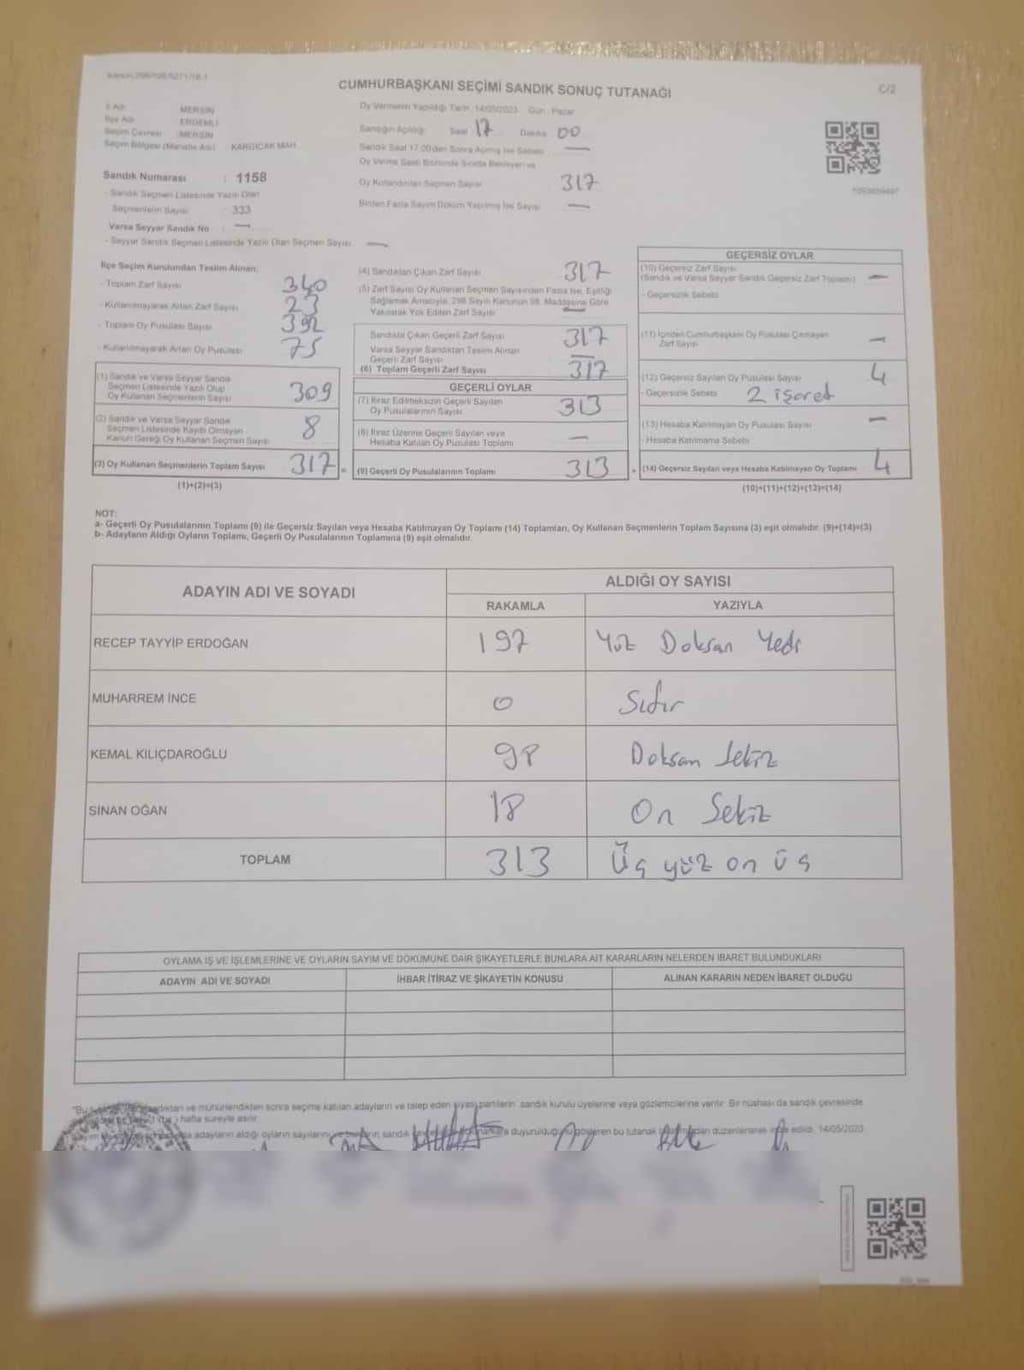 CUMHURBAŞKANI SEÇİMİ SANDIK SONUÇ TUTANAĞI
C/2
İl Adı : MERSİN
İlçe Adı : ERDEMLİ
Seçim Çevresi : MERSİN
Seçim Bölgesi (Mahalle Adı) : KARGICAK MAH.
Sandık Numarası : 1158
- Sandık Seçmen Listesinde Yazılı Olan
Seçmenlerin Sayısı : 333
Varsa Seyyar Sandık No : —
- Seyyar Sandık Seçmen Listesinde Yazılı Olan Seçmen Sayısı : —
Oy Vermenin Yapıldığı Tarih : 14/05/2023 Gün : Pazar
Sandığın Açıldığı Saat 17 Dakika 00
Sandık Saat 17.00'den Sonra Açılmış İse Sebebi —
Oy Verme Saati Bitiminde Sırada Bekleyen ve
Oy Kullandırılan Seçmen Sayısı 317
Birden Fazla Sayım Döküm Yapılmış İse Sayısı —
İlçe Seçim Kurulundan Teslim Alınan;
- Toplam Zarf Sayısı 340
- Kullanılmayarak Artan Zarf Sayısı 23
- Toplam Oy Pusulası Sayısı 392
- Kullanılmayarak Artan Oy Pusulası 75
(1) Sandık ve Varsa Seyyar Sandık
Seçmen Listesinde Yazılı Olup
Oy Kullanan Seçmenlerin Sayısı 309
(2) Sandık ve Varsa Seyyar Sandık
Seçmen Listesinde Kaydı Olmayan
Kanun Gereği Oy Kullanan Seçmen Sayısı 8
(3) Oy Kullanan Seçmenlerin Toplam Sayısı 317
(1)+(2)=(3)
(4) Sandıktan Çıkan Zarf Sayısı 317
(5) Zarf Sayısı Oy Kullanan Seçmen Sayısından Fazla İse, Eşitliği
Sağlamak Amacıyla, 298 Sayılı Kanunun 98. Maddesine Göre
Yakılarak Yok Edilen Zarf Sayısı —
Sandıkta Çıkan Geçerli Zarf Sayısı 317
Varsa Seyyar Sandıktan Teslim Alınan
Geçerli Zarf Sayısı —
(6) Toplam Geçerli Zarf Sayısı 317
GEÇERLİ OYLAR
(7) İtiraz Edilmeksizin Geçerli Sayılan
Oy Pusulalarının Sayısı 313
(8) İtiraz Üzerine Geçerli Sayılan veya
Hesaba Katılan Oy Pusulası Toplamı —
(9) Geçerli Oy Pusulalarının Toplamı 313
GEÇERSİZ OYLAR
(10) Geçersiz Zarf Sayısı
(Sandık ve Varsa Seyyar Sandık Geçersiz Zarf Toplamı) —
- Geçersizlik Sebebi
(11) İçinden Cumhurbaşkanı Oy Pusulası Çıkmayan
Zarf Sayısı —
(12) Geçersiz Sayılan Oy Pusulası Sayısı 4
- Geçersizlik Sebebi 2 işaret
(13) Hesaba Katılmayan Oy Pusulası Sayısı —
- Hesaba Katılmama Sebebi
(14) Geçersiz Sayılan veya Hesaba Katılmayan Oy Toplamı 4
(10)+(11)+(12)+(13)=(14)
NOT:
a- Geçerli Oy Pusulalarının Toplamı (9) ile Geçersiz Sayılan veya Hesaba Katılmayan Oy Toplamı (14) Toplamları, Oy Kullanan Seçmenlerin Toplam Sayısına (3) eşit olmalıdır. (9)+(14)=(3)
b- Adayların Aldığı Oyların Toplamı, Geçerli Oy Pusulalarının Toplamına (9) eşit olmalıdır.
ADAYIN ADI VE SOYADI
ALDIĞI OY SAYISI
RAKAMLA YAZIYLA
RECEP TAYYİP ERDOĞAN 197 Yüz Doksan Yedi
MUHARREM İNCE 0 Sıfır
KEMAL KILIÇDAROĞLU 98 Doksan Sekiz
SİNAN OĞAN 18 On Sekiz
TOPLAM 313 Üç yüz on üç
OYLAMA İŞ VE İŞLEMLERİNE VE OYLARIN SAYIM VE DÖKÜMÜNE DAİR ŞİKAYETLERLE BUNLARA AİT KARARLARIN NELERDEN İBARET BULUNDUKLARI
ADAYIN ADI VE SOYADI İHBAR İTİRAZ VE ŞİKAYETİN KONUSU ALINAN KARARIN NEDEN İBARET OLDUĞU
ve mühürlendikten sonra seçime katılan adayların ve talep eden siyasi partilerin sandık kurulu üyelerine veya gözlemcilerine verilir. Bir nüshası da sandık çevresinde
hafta süreyle asılır.
adayların aldığı oyların sayılarını sandık duyurulduğunu gösteren bu tutanak düzenlenerek imza edildi. 14/05/2023